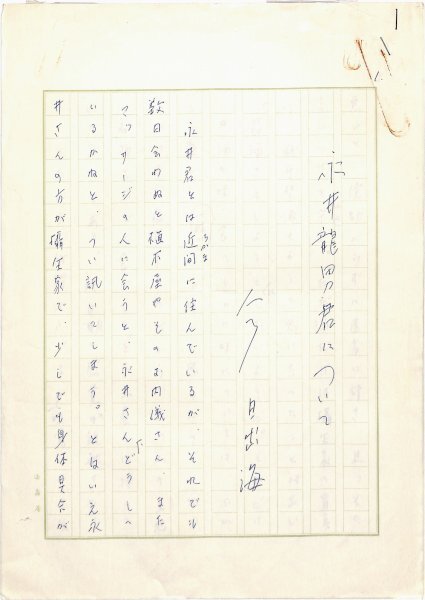 1
永井龍男君について
今日出海
永井君とは近間に住んでいるが、それでも
ちかま
数日会わぬと植木屋やそのお内儀さん、また
マッサージの人に会うと、永井さんどうして
いるかねと、つい訊いてしまう。とはいえ永
井さんの方が攝生家で、少しでも身体具合が